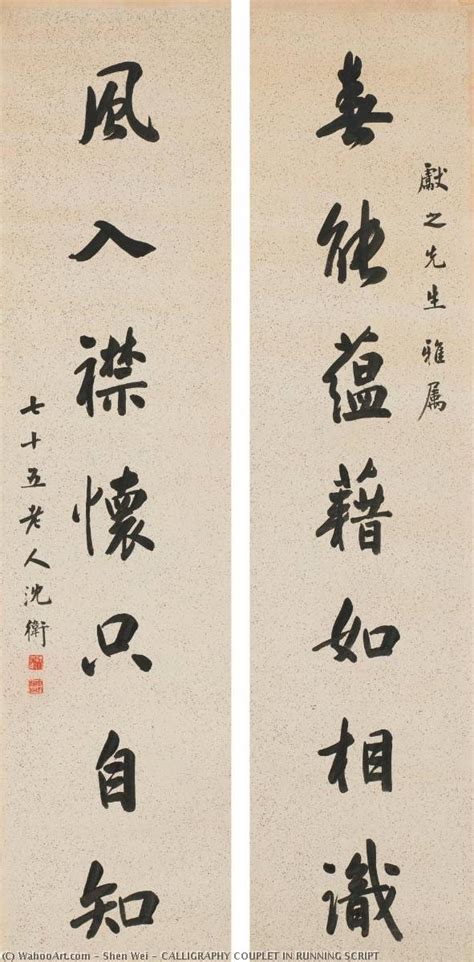 春能薀藉如相識
獻之先生雅属
風入襟懷只自知
七十五老人沈衛
(C) WahooArt.com - Shen Wei - CALLIGRAPHY COUPLET IN RUNNING SCRIPT